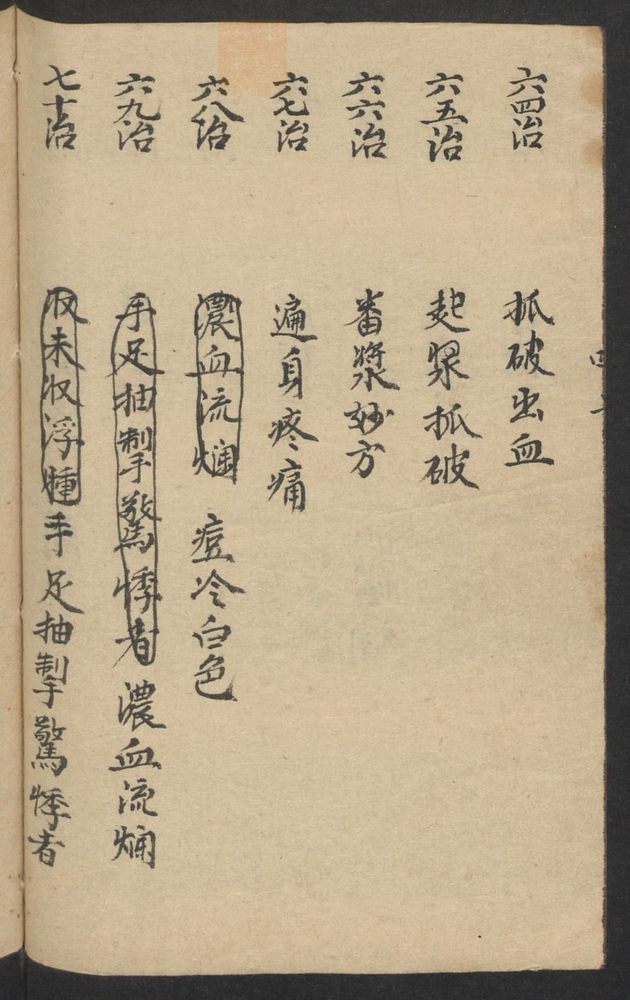 六四治 抓破出血
六五治 起漿抓破
六六治 番漿妙方
六七治 遍身疼痛
六八治 濃血流爛 痘冷白色
六九治 手足抽掣驚悸者 濃血流爛
七十治 收未收浮腫 手足抽掣驚悸者